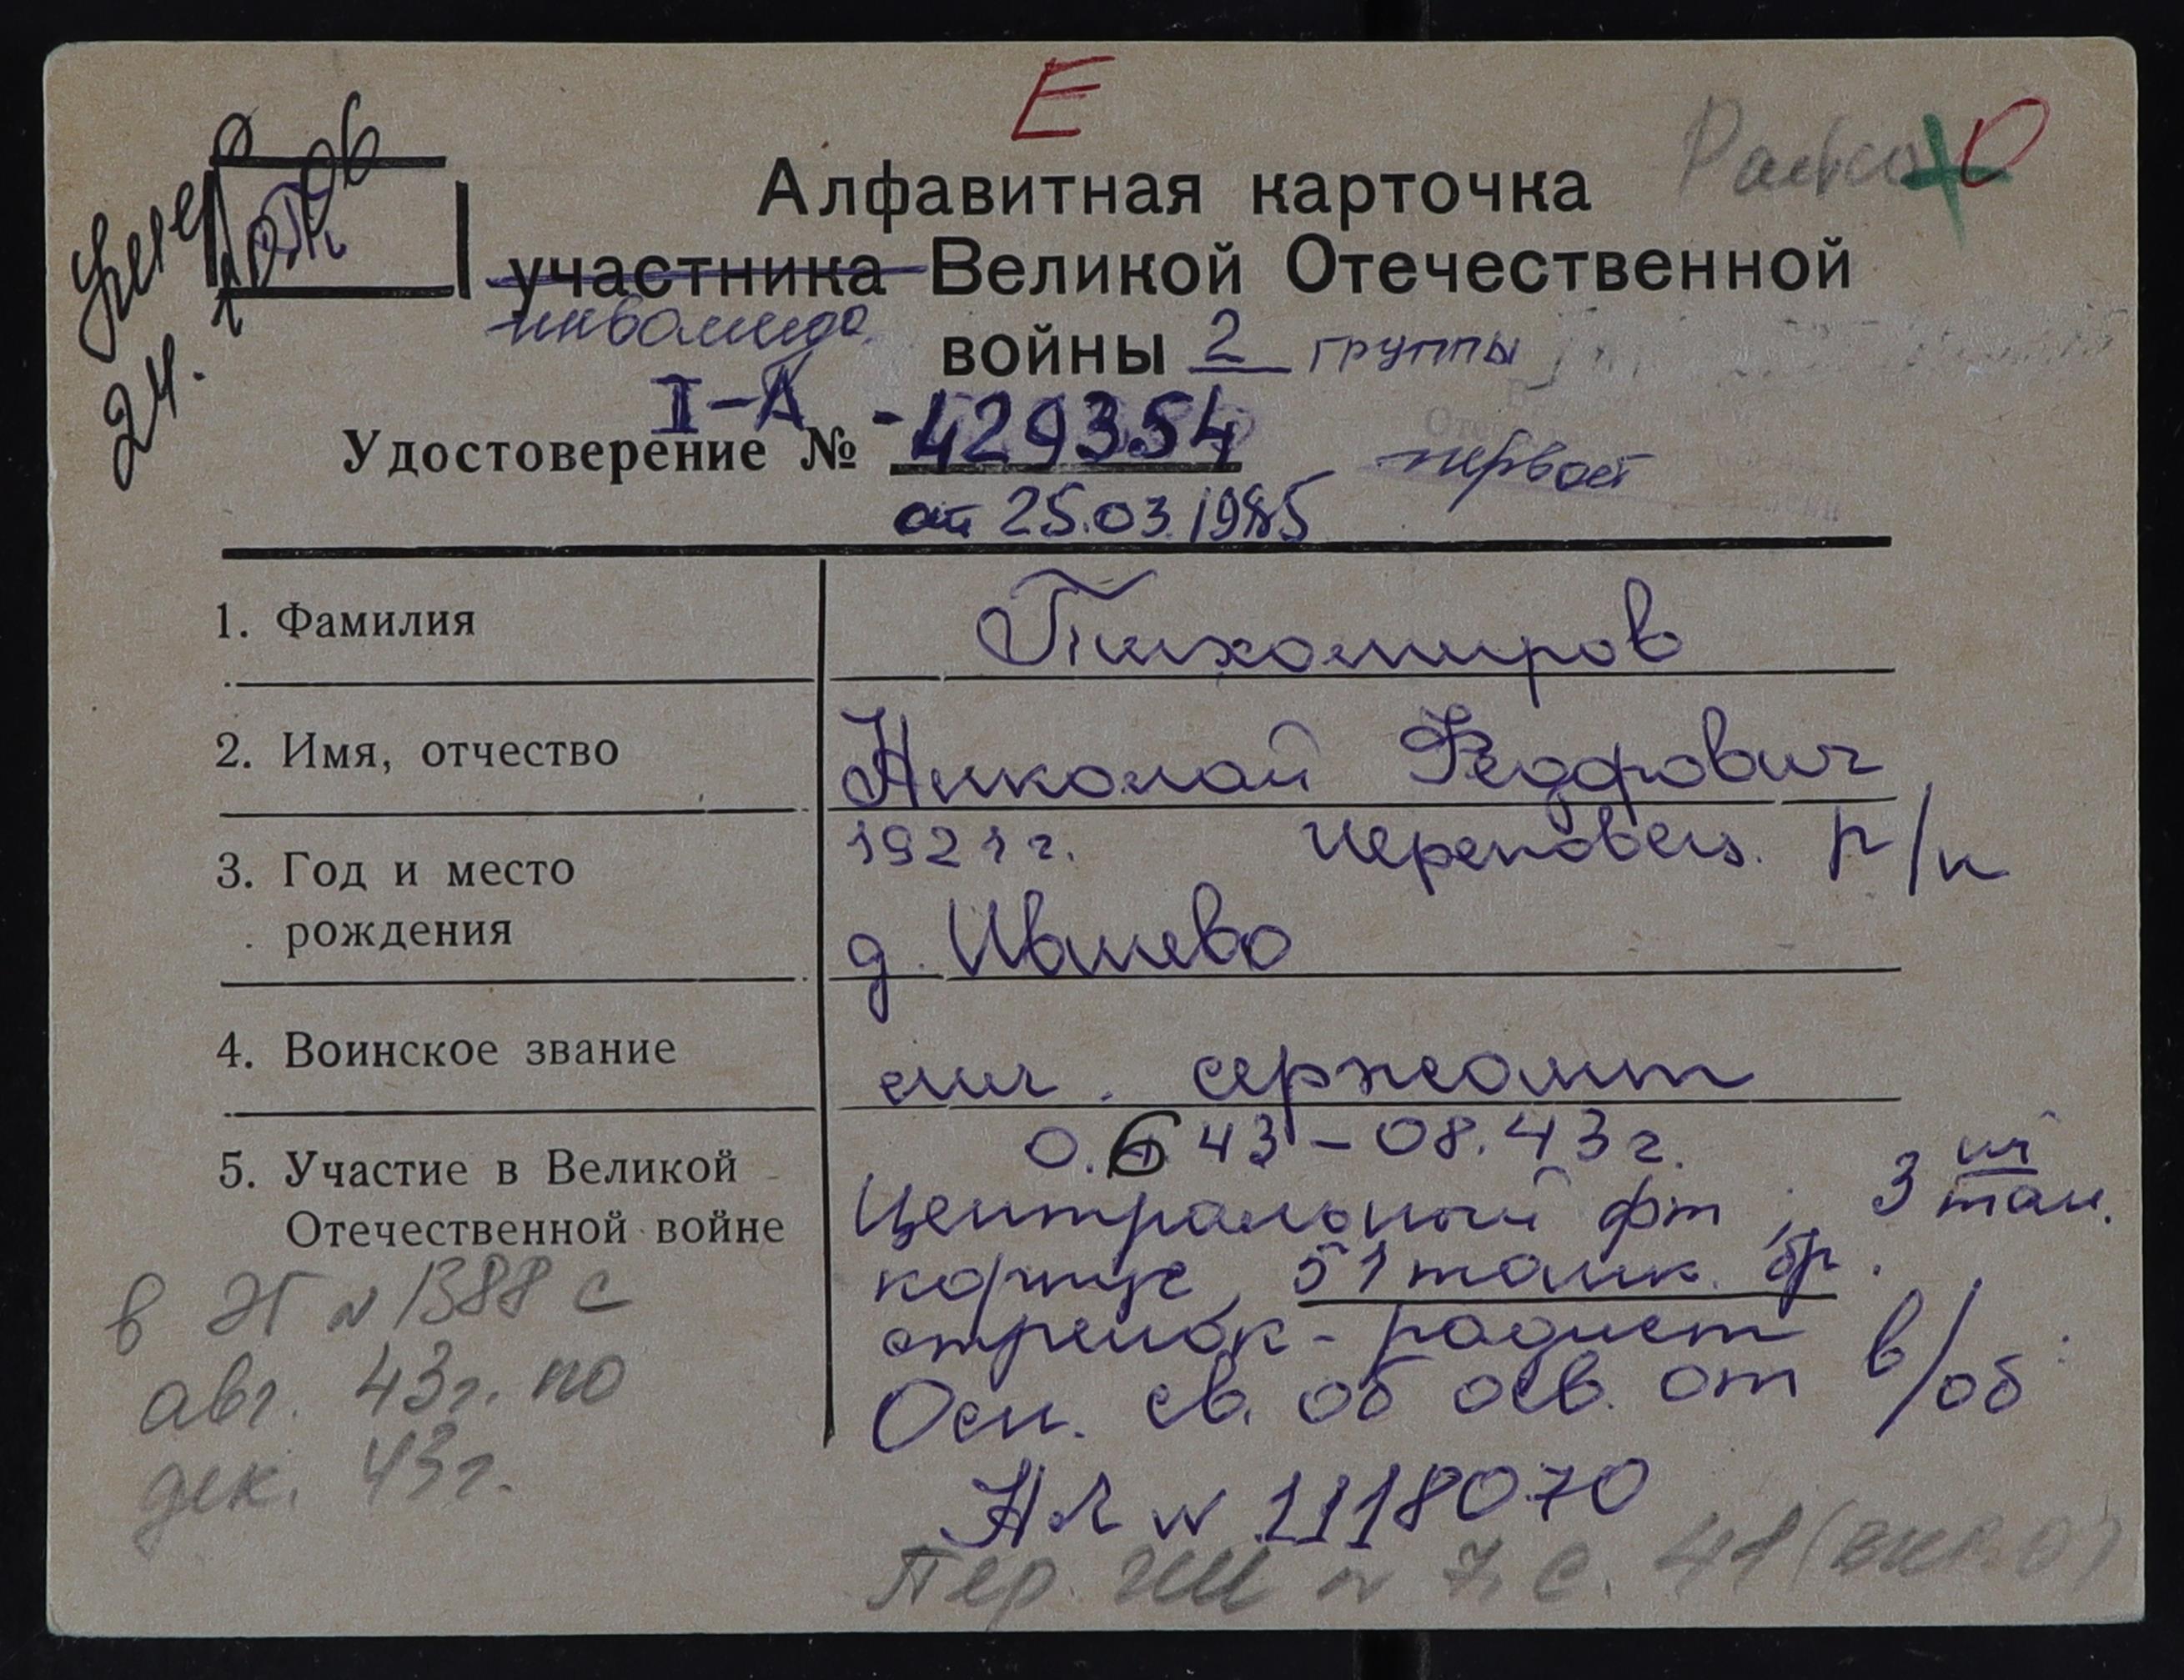 Е
О
Умер
24.
06
Алфавитная карточка
участника Великой Отечественной
инвалида
войны 2 группы
I-А
Удостоверение № -429354
первой
от 25.03.1985
1. Фамилия
Тихомиров
2. Имя, отчество
Николай Федорович
3. Год и место
рождения
1921 г. Череповец. р/н
д. Ившево
4. Воинское звание
мл. сержант
5. Участие в Великой
Отечественной войне
0.6 43 - 08.43 г.
Центральный фт, 3
тан.
корпус, 51 танк. бр.
стрелок-радист
Осн. св. об осв. от в/об
НЛ № 1118070
в ЭГ № 1388 с
авг. 43г. по
дек. 43г.
Пер. № 7, с. 41